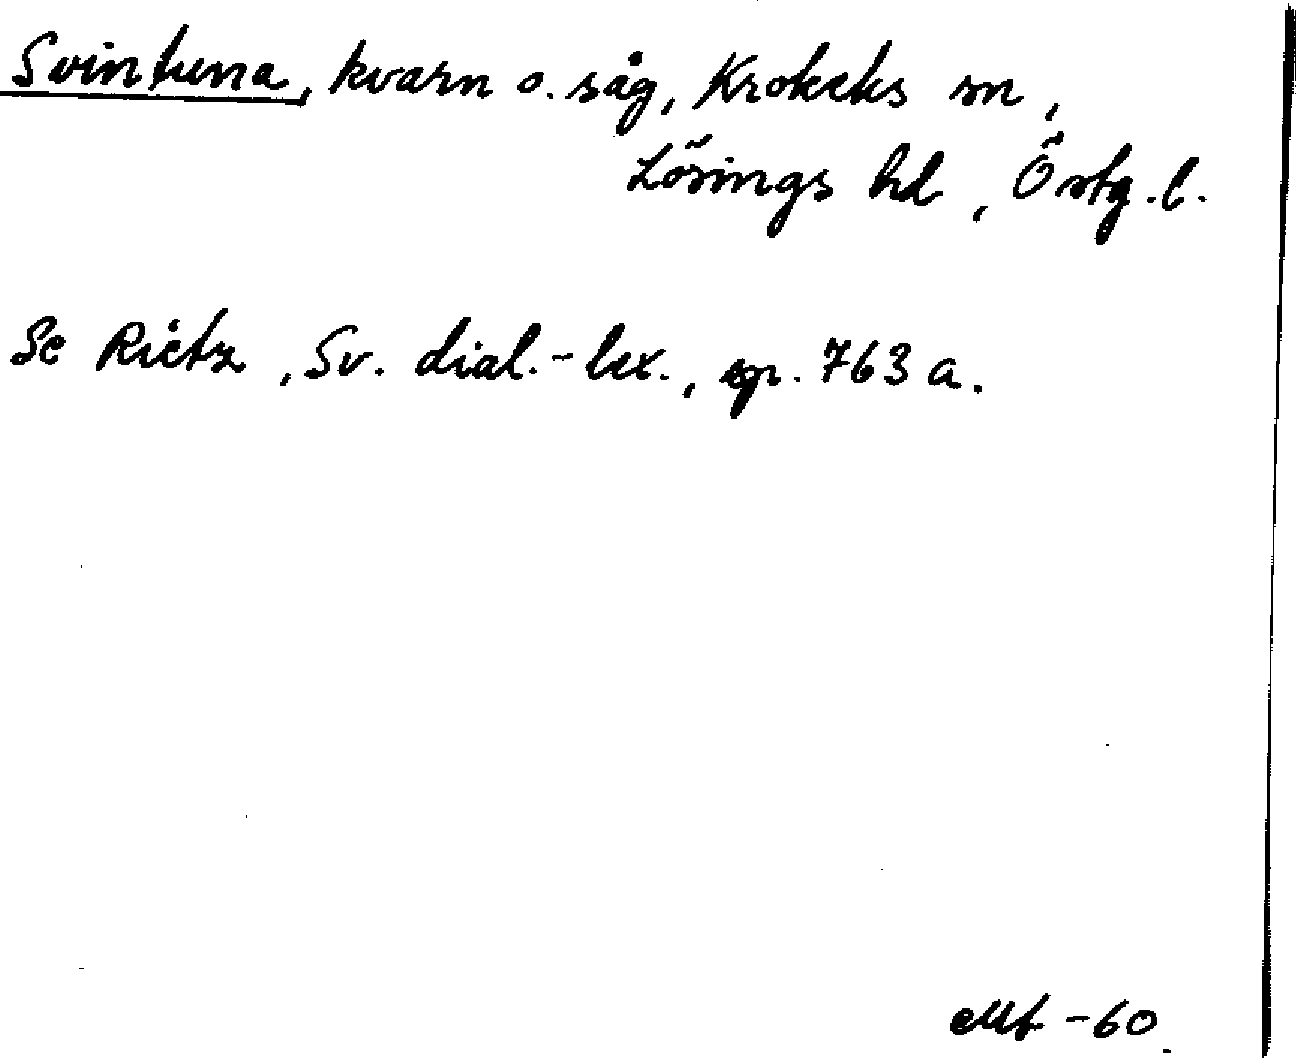 Svintuna, kvarn o. såg, Krokeks sn,
Lösings hd, Östg.l.
Se Rietz, Sv. dial.-lex., sp. 763 a.
-60